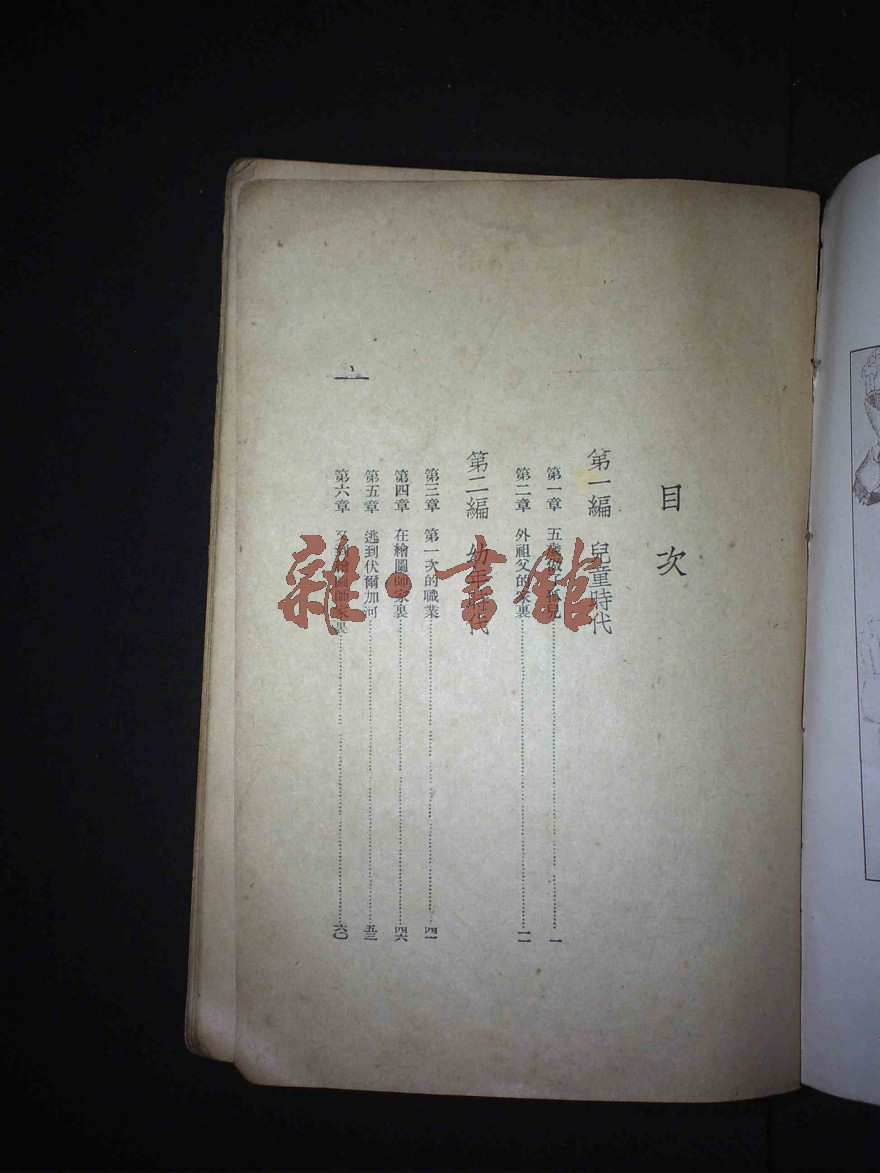 目次
第一編　兒童時代
第一章　五歲做了孤兒……一
第二章　外祖父的家裏……一一
第二編　幼年時代
第三章　第一次的職業……四一
第四章　在繪圖師家裏……四六
第五章　逃到伏爾加河……五三
第六章　到繪圖師家裏……六〇
一
雜·書館